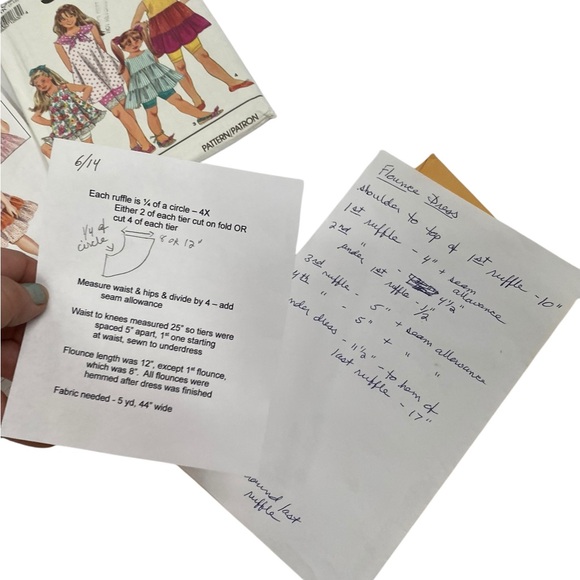 PATTERN/PATRON
6/14
Each ruffle is ¼ of a circle – 4X
Either 2 of each tier cut on fold OR
cut 4 of each tier
1/4 of
circle
8 OR 12"
Measure waist & hips & divide by 4 – add
seam allowance
Waist to knees measured 25" so tiers were
spaced 5" apart, 1st one starting
at waist, sewn to underdress
Flounce length was 12", except 1st flounce,
which was 8". All flounces were
hemmed after dress was finished
Fabric needed - 5 yd, 44" wide
Flounce Dress
shoulder to top of 1st ruffle - 10"
1st ruffle - 4" + seam allowance
2nd " - 4 1/2"
under 1st ruffle - 1/2"
3rd ruffle - 5" + seam allowance
4th " - 5" + " "
nder dress - 11 1/2" - to hem of
last ruffle - 17"
round last
ruffle